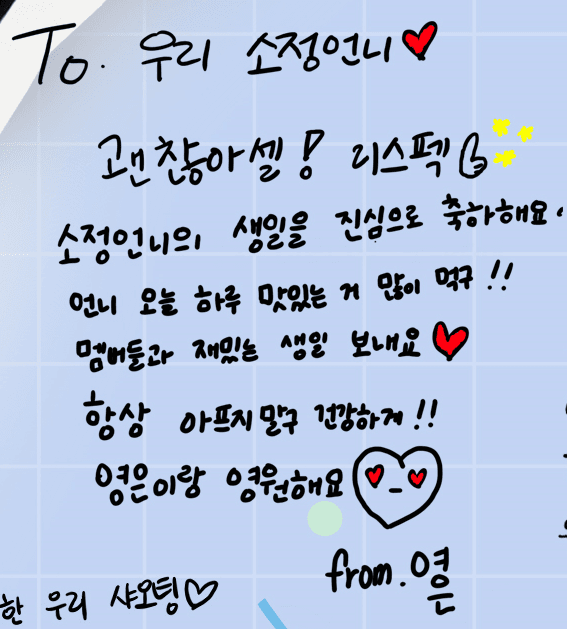 To. 우리 소정언니♥
괜찮아셀! 리스펙
소정언니의 생일을 진심으로 축하해요.
언니 오늘 하루 맛있는 거 많이 먹구!!
멤버들과 재밌는 생일 보내요♥
항상 아프지말구 건강하게!!
영은이랑 영원해요
from. 영은
한 우리 샤오팅♡